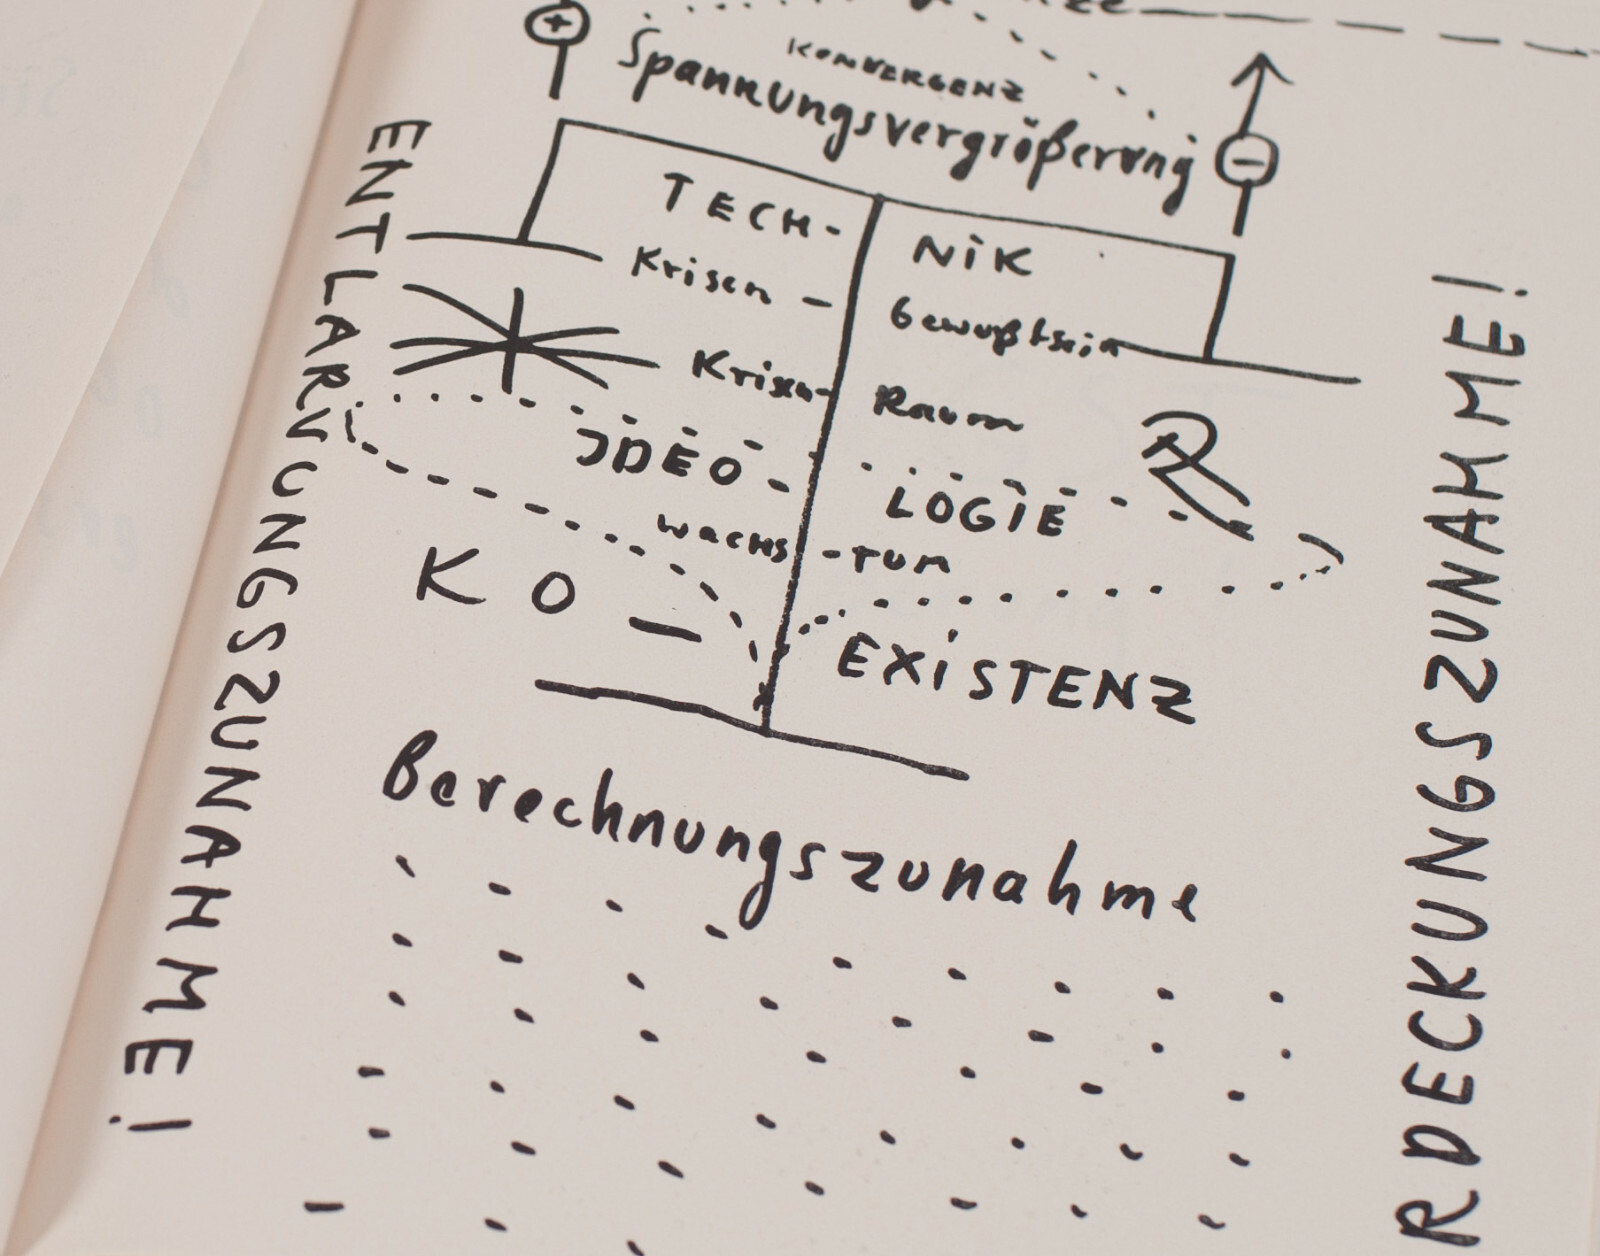 +
KONVERGENZ
Spannungsvergrößerung
−
TECH-NiK
Krisen-Gewußtsein
Krisen-Raum
JDEO-LOGiE
WACHS-TUM
KO-EXiSTENZ
Berechnungszunahme
ENTLARVUNGSZUNAHME!
RDECKUNGSZUNAHME!